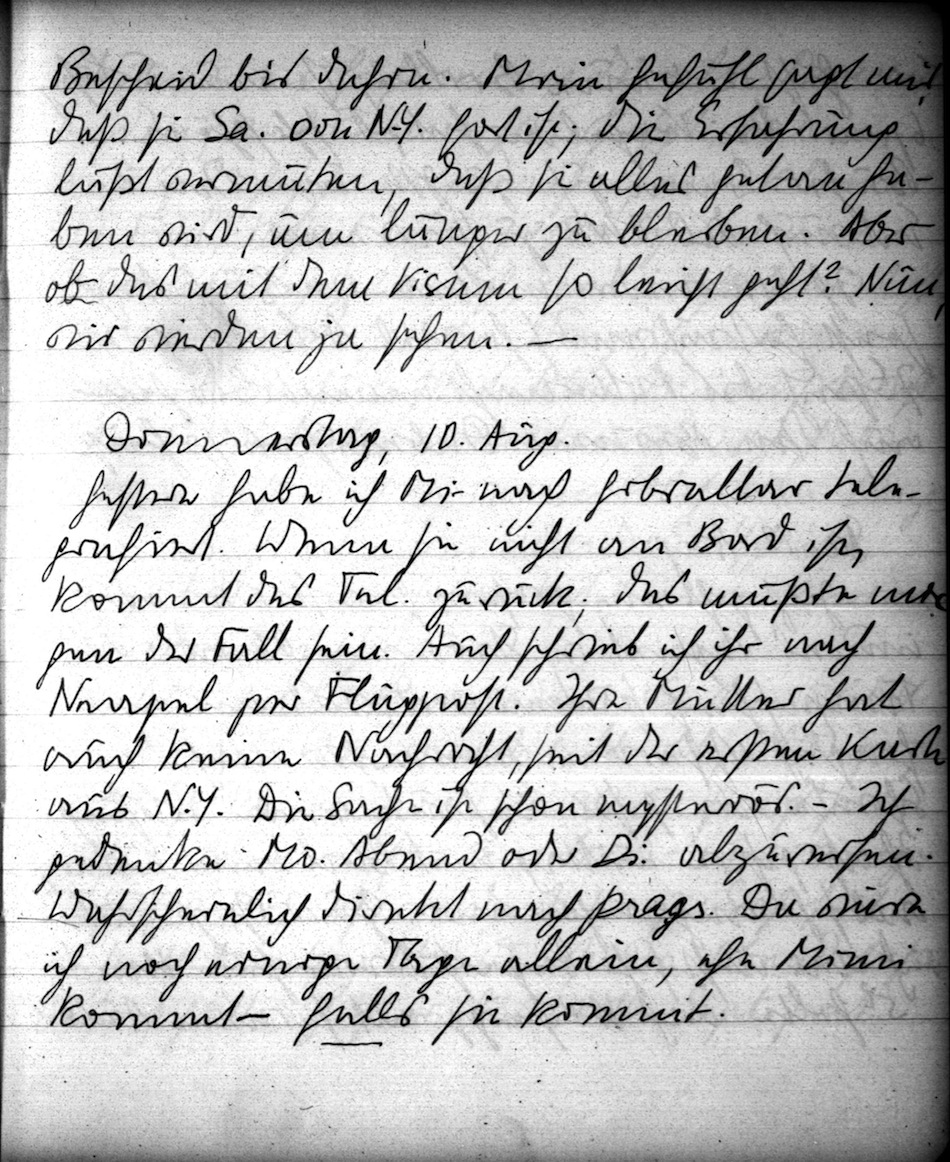 Bescheid bis dahin. Mein Gefühl sagt mir,
daß sie Sa. von N.Y. fort ist; die Erfahrung
läßt vermuten, daß sie alles getan ha-
ben wird, um länger zu bleiben. Aber
ob das mit dem Visum so leicht geht? Nun,
wir werden ja sehen. —
Donnerstag, 10. Aug.
Gestern habe ich Mi- nach Gibraltar tele-
grafiert. Wenn sie nicht an Bord ist,
kommt das Tel. zurück; das müßte mor
gen der Fall sein. Auch schrieb ich ihr nach
Neapel per Flugpost. Ihre Mutter hat
auch keine Nachricht, seit der ersten Karte
aus N.Y. Die Sache ist schon mysteriös. - Ich
gedenke Mo. Abend oder Di. abzureisen.
Wahrscheinlich direkt nach Prags. Da wäre
ich noch einige Tage allein, ehe Mimi
kommt - falls sie kommt.